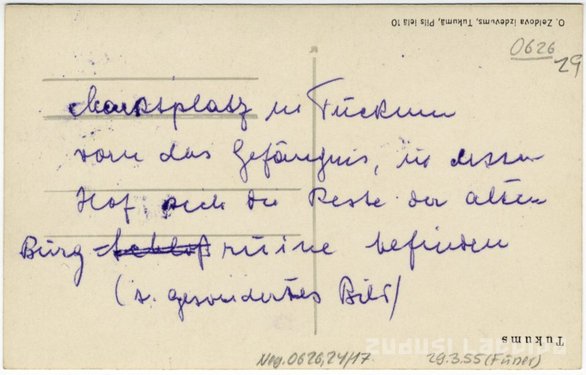 O. Zeldova izdevums, Tukumā, Pils ielā 10
0626
29
Marktplatz in Tuckum
vorn das Gefängnis, in dessen
Hof sich die Reste der alten
Burg-schloß ruine befinden
(s. gesondertes Bild)
Tukums
ZUDUSĪ LATVIJA
Neg. 0626,24/17
29.3.55 (Füner)